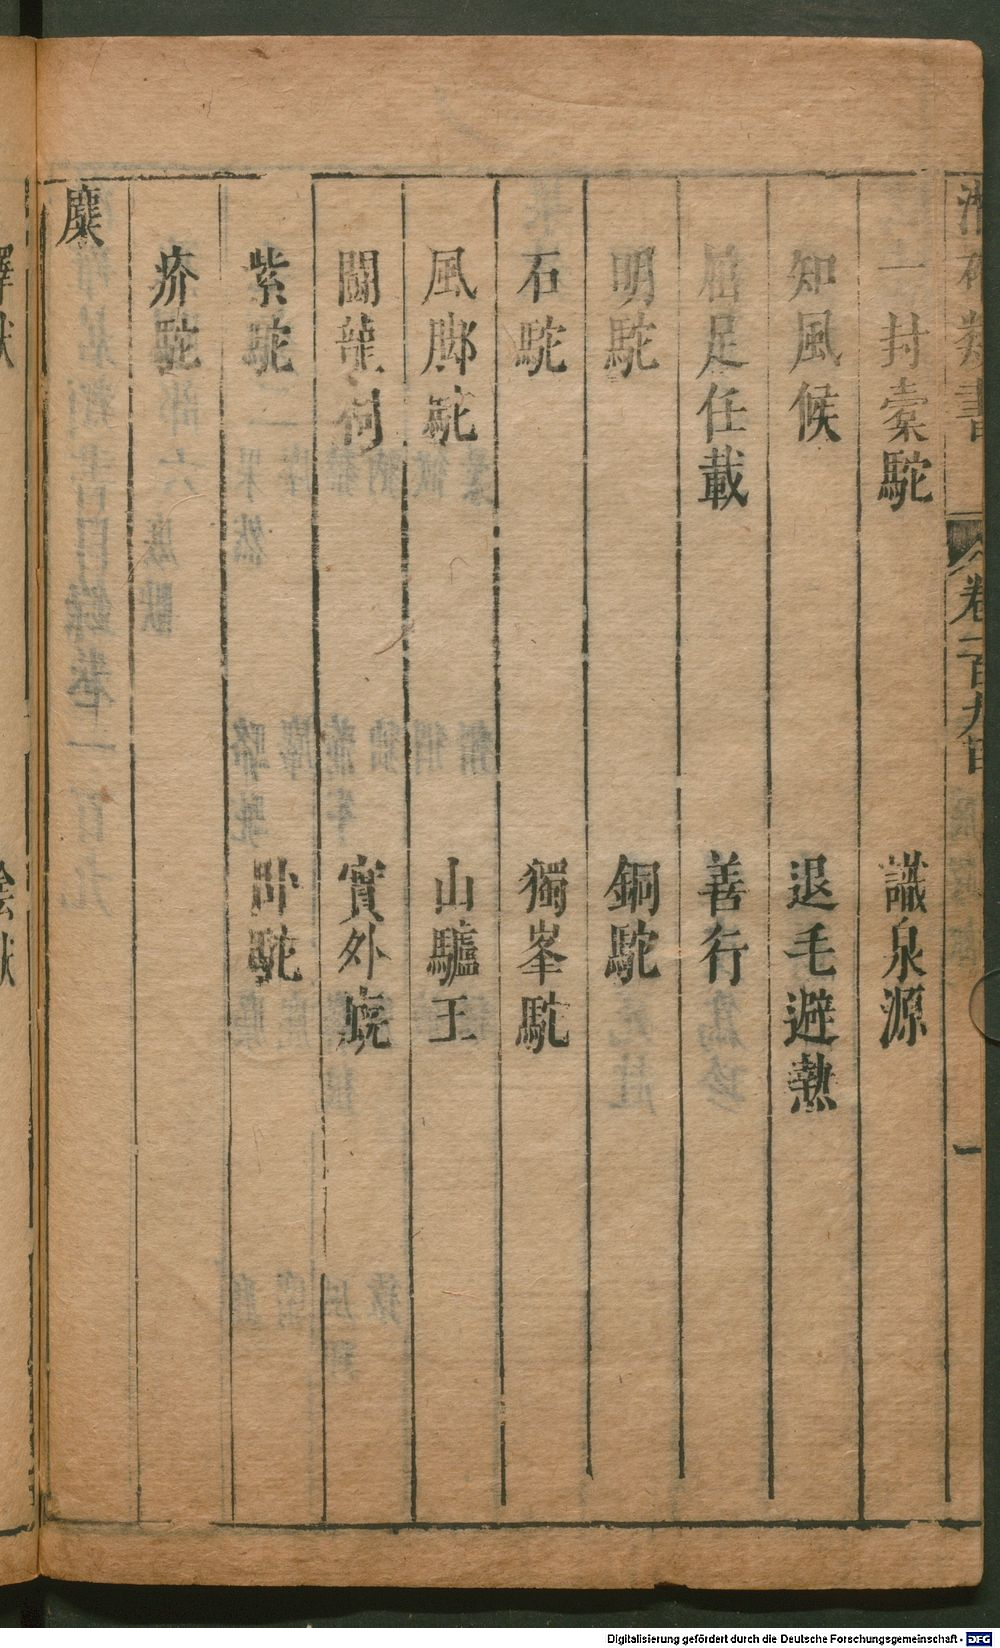 一封槖駝 識泉源
知風候 退毛避熱
屈足任載 善行
明駝 銅駝
石駝 獨峯駝
風脚駝 山驢王
圖龍何 實外
紫駝 卧駝
疥駝
麋
卷一百九
一
Digitalisierung gefördert durch die Deutsche Forschungsgemeinschaft - DFG